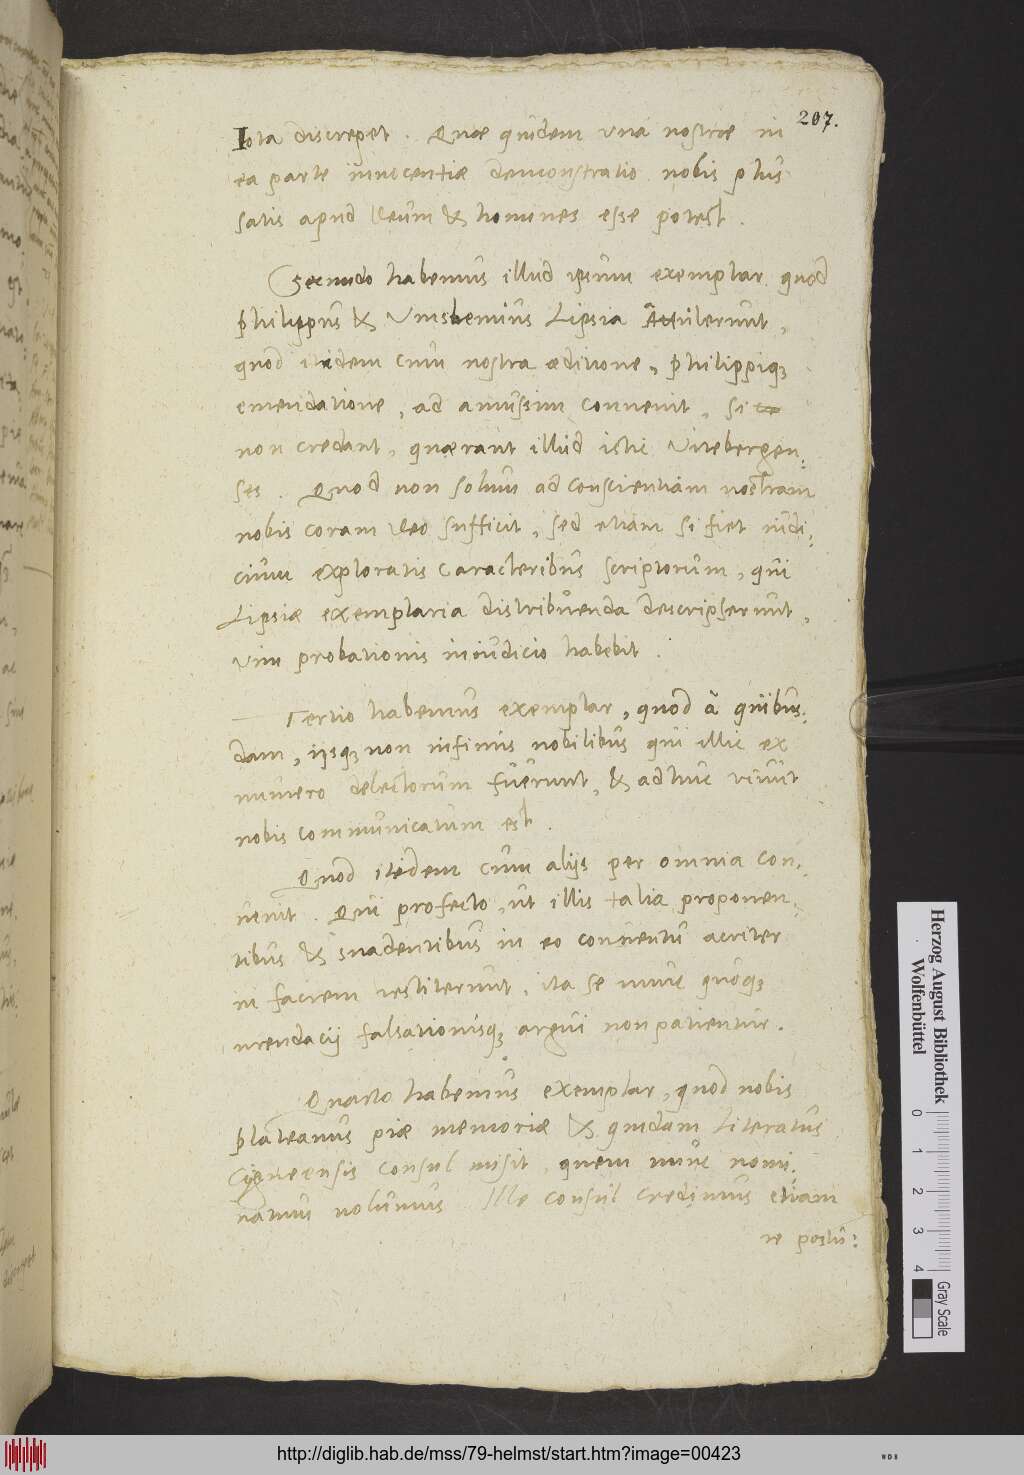 207.
Iota discrepet. Quae quidem una nostrae in
ea parte innocentiae demonstratio nobis plus
satis apud Deum & homines esse potest.
Secundo habemus illud ipsum exemplar quod
philippus & Vinshemius Lipsia Attulerunt,
quod itidem cum nostra aeditione, philippiq₃
emendatione, ad amussim convenit, si
non credant, quaerant illud istic Vitebergen:
ses. Quod non solum ad conscientiam nostram
nobis coram Deo sufficit, sed etiam si fiet iudi:
cium exploratis caracteribus scriptorum, qui
Lipsiae exemplaria distribuenda descripserunt,
vim probationis in iudicio habebit.
Tertio habemus exemplar, quod à quibus:
dam, ijsq₃ non infimis nobilibus qui illic ex
numero delectorum fuerunt, & adhuc vivunt
nobis communicatum est.
Quod itidem cum alijs per omnia con:
venit. Qui profecto, ut illis talia proponen:
tibus & suadentibus in eo conventu acriter
in faciem restiterunt, ita se nunc quoq₃
mendacij falsationisq₃ argui non patientur.
Quarto habemus exemplar, quod nobis
plateanus piae memoriae & quidam Literatus
Cigneensis consul misit, quem nunc nomi:
natum nolumus Ille consul credimus etiam
re postu:
Herzog August Bibliothek
Wolfenbüttel
0 1 2 3 4
Gray Scale
http://diglib.hab.de/mss/79-helmst/start.htm?image=00423
WDB